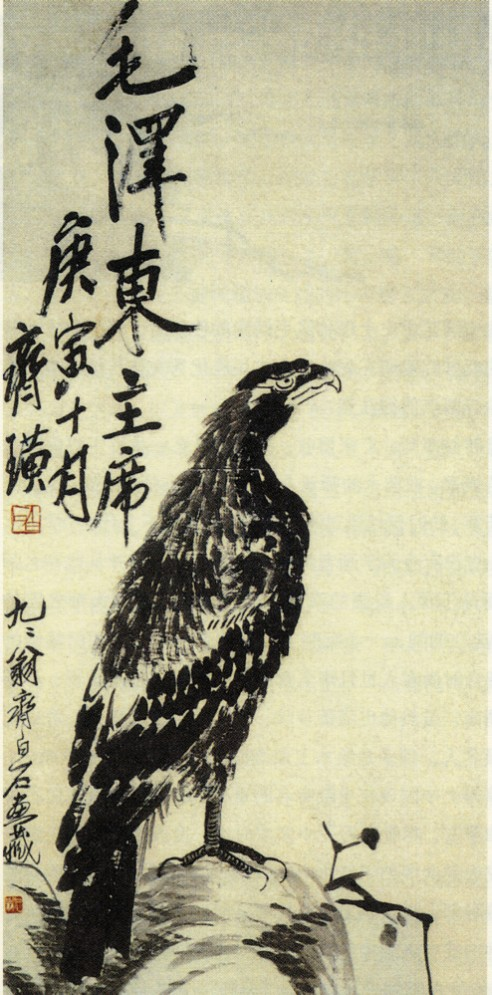 毛澤東主席
庚寅十月
齊璜
九二翁齊白石畫藏